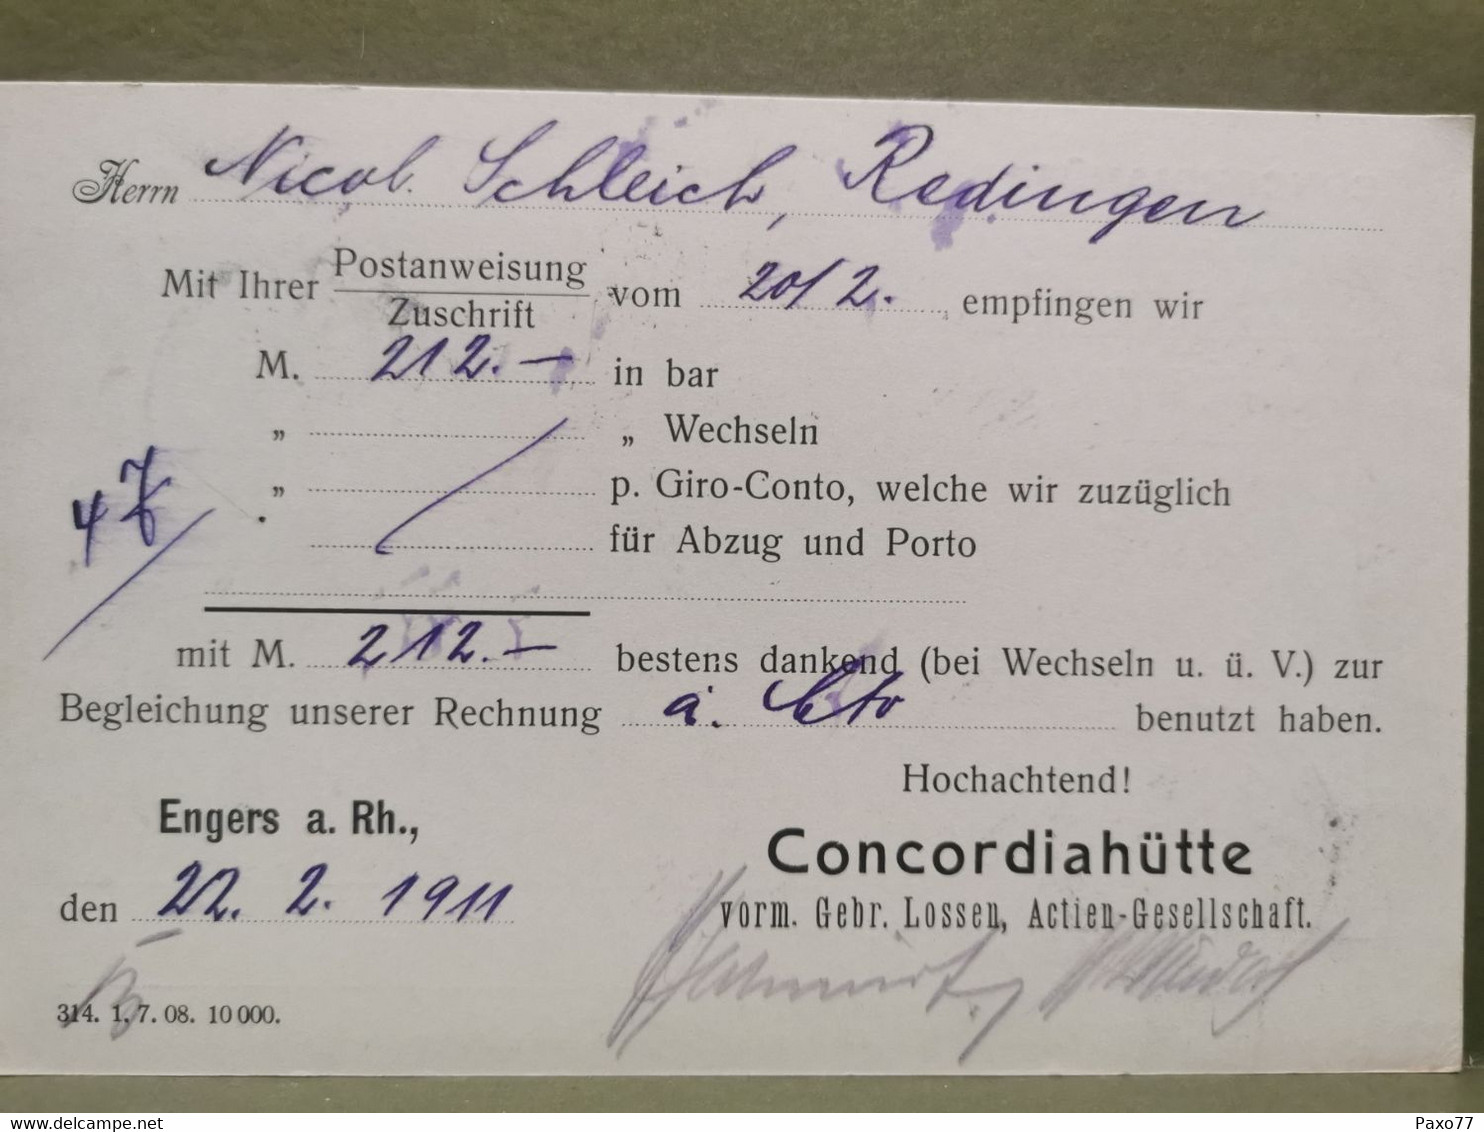 Herrn Nicol. Schleich, Redingen
Mit Ihrer Postanweisung vom 20/2. empfingen wir
Zuschrift
M. 212.— in bar
„ „ Wechseln
„ p. Giro-Conto, welche wir zuzüglich
für Abzug und Porto
mit M. 212.— bestens dankend (bei Wechseln u. ü. V.) zur
Begleichung unserer Rechnung a. Cto benutzt haben.
Hochachtend!
Engers a. Rh.,
Concordiahütte
den 22. 2. 1911
vorm. Gebr. Lossen, Actien-Gesellschaft.
314. 1. 7. 08. 10 000.
www.delcampe.net
Paxo77